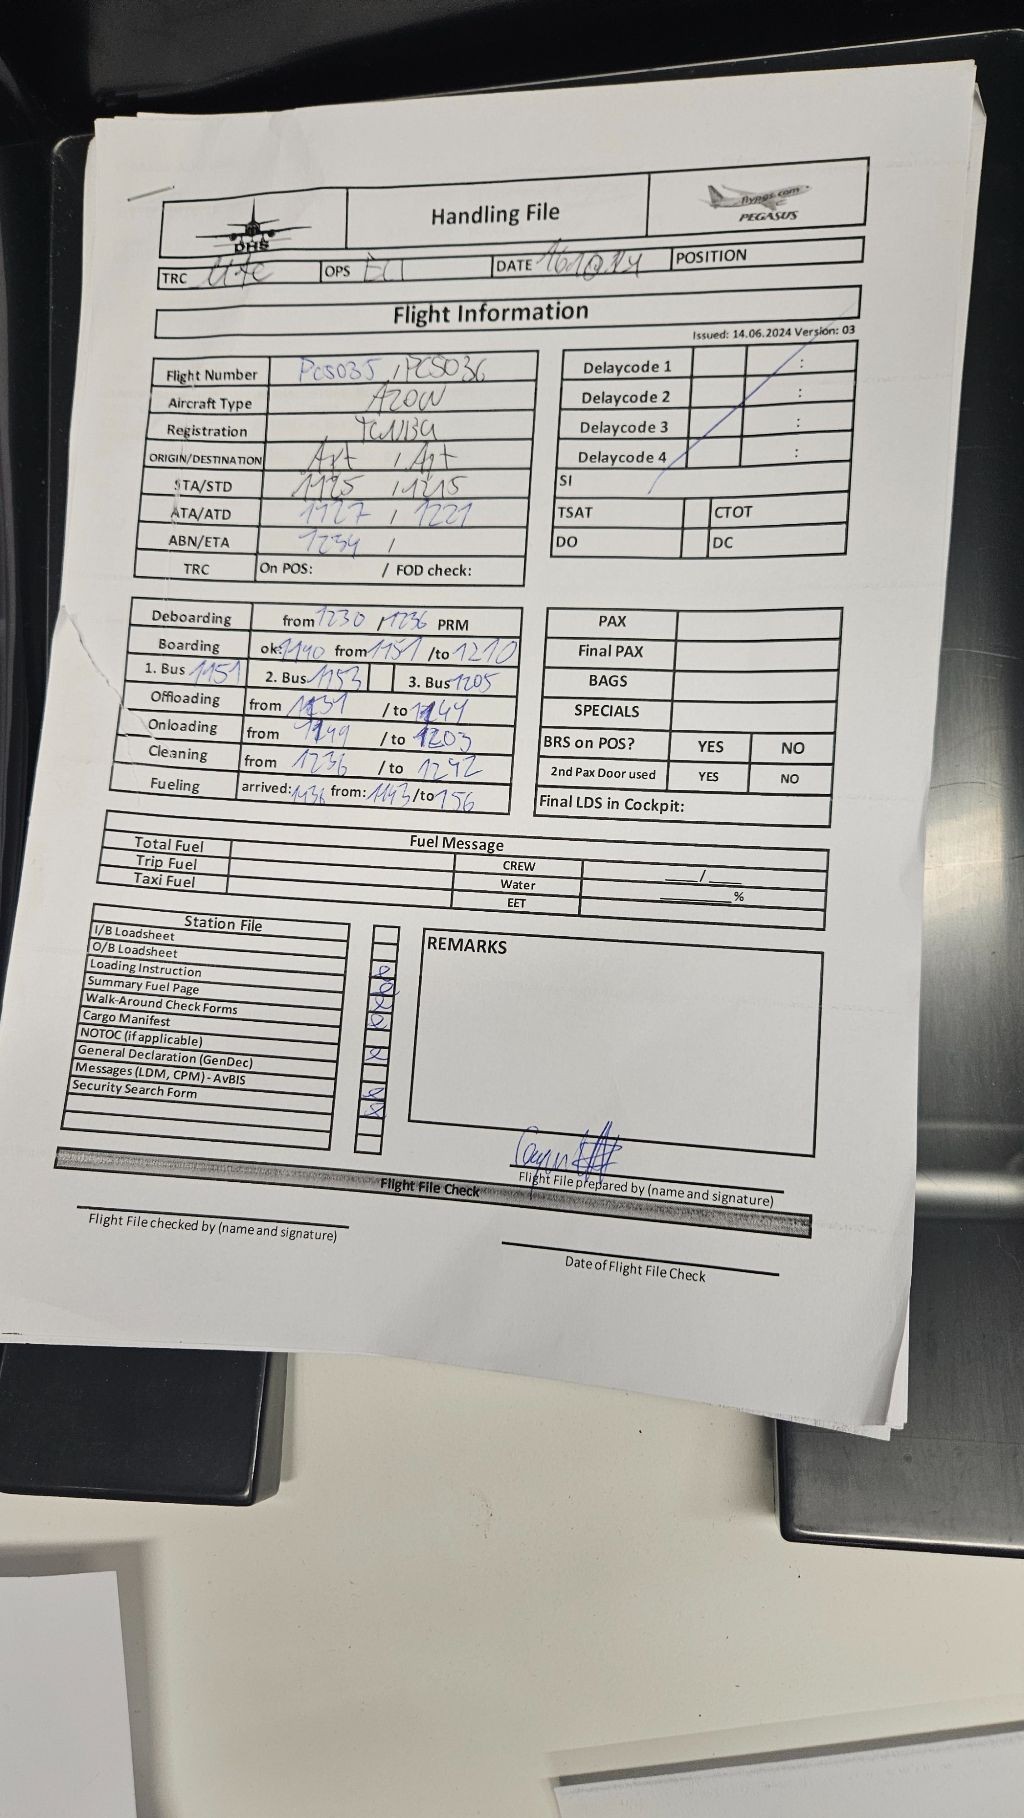 DHS
Handling File
flypgs.com
PEGASUS
TRC OPS ECI DATE POSITION
Flight Information
Issued: 14.06.2024 Version: 03
Flight Number PC5035 , PC5036
Aircraft Type A20N
Registration TCNBU
ORIGIN/DESTINATION
STA/STD 1125 , 1215
ATA/ATD 1127 , 1221
ABN/ETA 1234 /
TRC On POS: / FOD check:
Delaycode 1 :
Delaycode 2 :
Delaycode 3 :
Delaycode 4 :
SI
TSAT CTOT
DO DC
Deboarding from 1230 / 1236 PRM
Boarding ok: 1140 from 1151 /to 1210
1. Bus 1151 2. Bus 1153 3. Bus 1205
Offloading from 1131 / to 1144
Onloading from 1149 / to 1203
Cleaning from 1236 / to 1242
Fueling arrived: 1136 from: 1143 /to 156
PAX
Final PAX
BAGS
SPECIALS
BRS on POS? YES NO
2nd Pax Door used YES NO
Final LDS in Cockpit:
Fuel Message
Total Fuel
Trip Fuel
Taxi Fuel
CREW ___/___
Water ______%
EET
Station File
I/B Loadsheet
O/B Loadsheet
Loading Instruction
Summary Fuel Page
Walk-Around Check Forms
Cargo Manifest
NOTOC (if applicable)
General Declaration (GenDec)
Messages (LDM, CPM) - AvBIS
Security Search Form
REMARKS
Flight File prepared by (name and signature)
Flight File Check
Flight File checked by (name and signature)
Date of Flight File Check